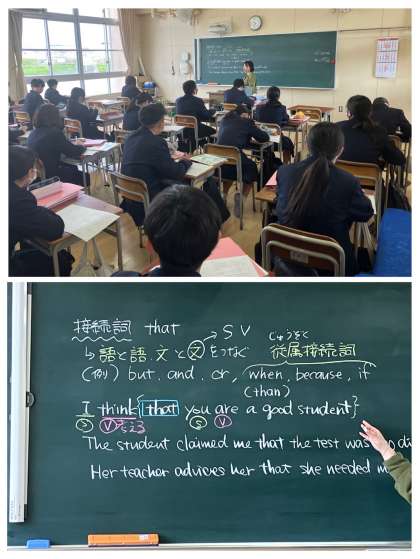 接続詞 that → S V
↳ 語と語 文と文をつなぐ じゅうぞく 従属接続詞
(例) but, and, or, when, because, if
(than)
I think {that you are a good student}
S V 考える S V
The student claimed me that the test was
Her teacher advices her that she needed